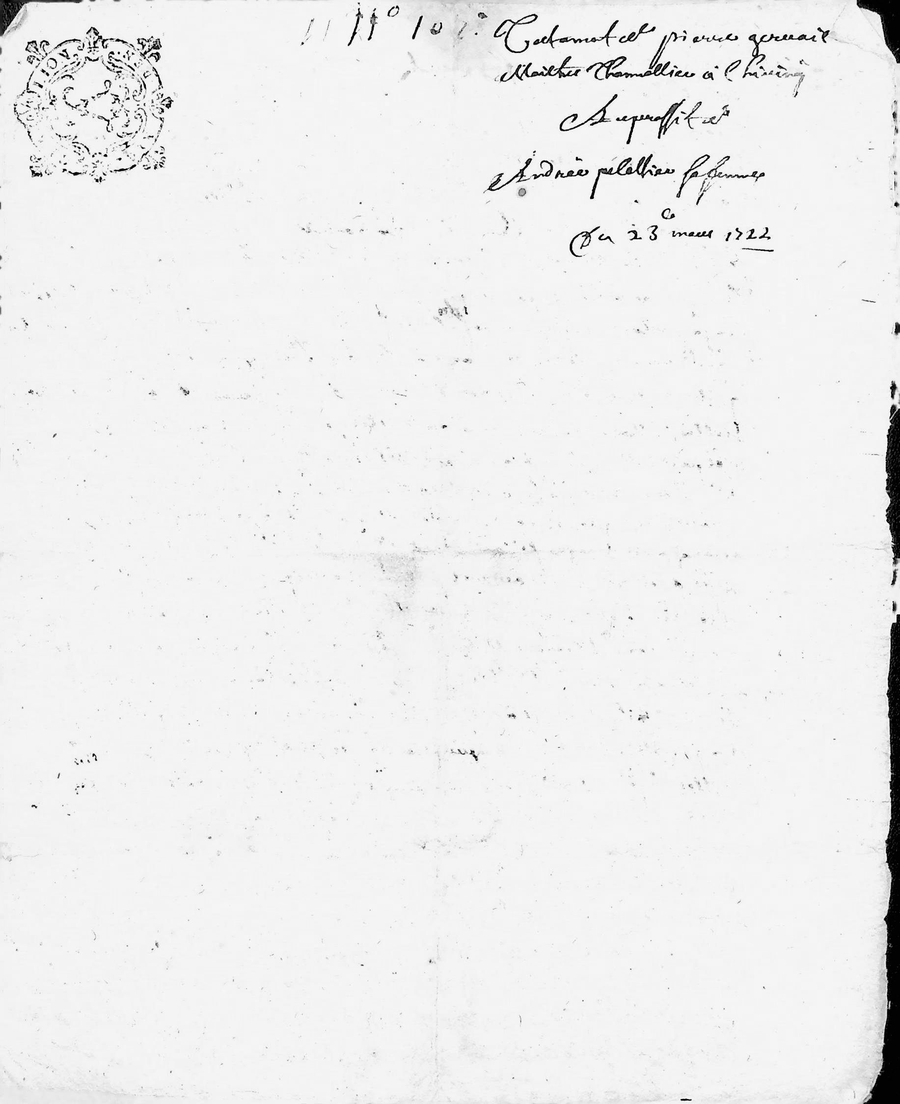 N° 107.
Testament de pierre geruais
Maitre Chamellier a
Au proffit de
Andrée pelettier sa femme
Du 23e mars 1722